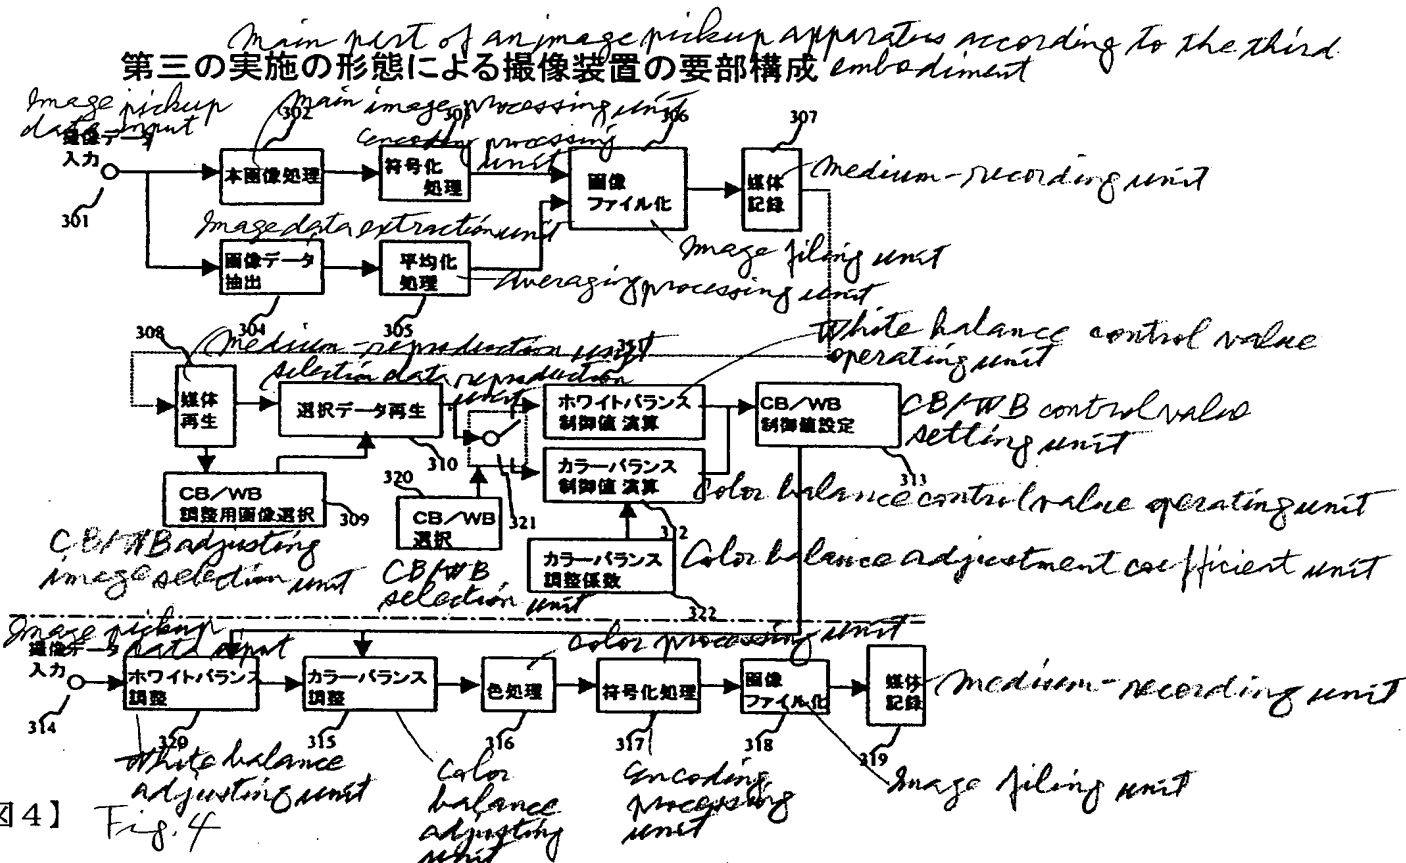 Main part of an image pickup apparatus according to the third
embodiment
第三の実施の形態による撮像装置の要部構成
Image pickup
data input
撮像データ
入力
301
302
Main image processing unit
本画像処理
303
encoding processing
unit
符号化
処理
306
画像
ファイル化
307
媒体
記録
Medium-recording unit
Image data extraction unit
画像データ
抽出
304
平均化
処理
305
Averaging processing unit
Image filing unit
308
Medium-reproduction unit
媒体
再生
selection data reproduction
unit
選択データ再生
310
311
White balance control value
operating unit
ホワイトバランス
制御値演算
CB/WB
制御値設定
313
CB/WB control value
setting unit
カラーバランス
制御値演算
312
Color balance control value operating unit
CB/WB
調整用画像選択
309
CB/WB adjusting
image selection
unit
320
CB/WB
選択
321
CB/WB
selection unit
カラーバランス
調整係数
322
Color balance adjustment coefficient unit
Image pickup
data input
撮像データ
入力
314
ホワイトバランス
調整
320
White balance
adjusting unit
カラーバランス
調整
315
Color
balance
adjusting
unit
Color processing unit
色処理
316
符号化処理
317
Encoding
processing
unit
画像
ファイル化
318
Image filing unit
媒体
記録
319
Medium-recording unit
図4】 Fig. 4